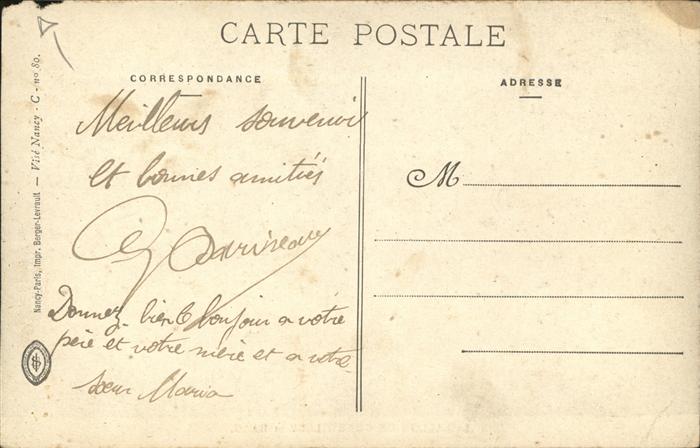 CARTE POSTALE
CORRESPONDANCE
Meilleurs souvenir
et bonnes amitiés
Donnez bien le bonjour a votre
père et votre mère et a votre
sœur Maria
ADRESSE
M
Nancy-Paris, Impr. Berger-Levrault — Visé Nancy - C - nº 80.